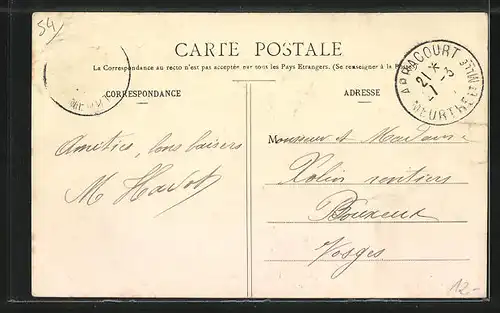 54
CARTE POSTALE
La Correspondance au recto n'est pas acceptée par tous les Pays Etrangers. (Se renseigner à la Poste)
CORRESPONDANCE
ADRESSE
ARRACOURT
21 *
7 - 3
MEURTHE ET MLLE
MEURT
Amitiés, bons baisers
M
Monsieur et Madame
Colin rentiers
Vosges
12.-